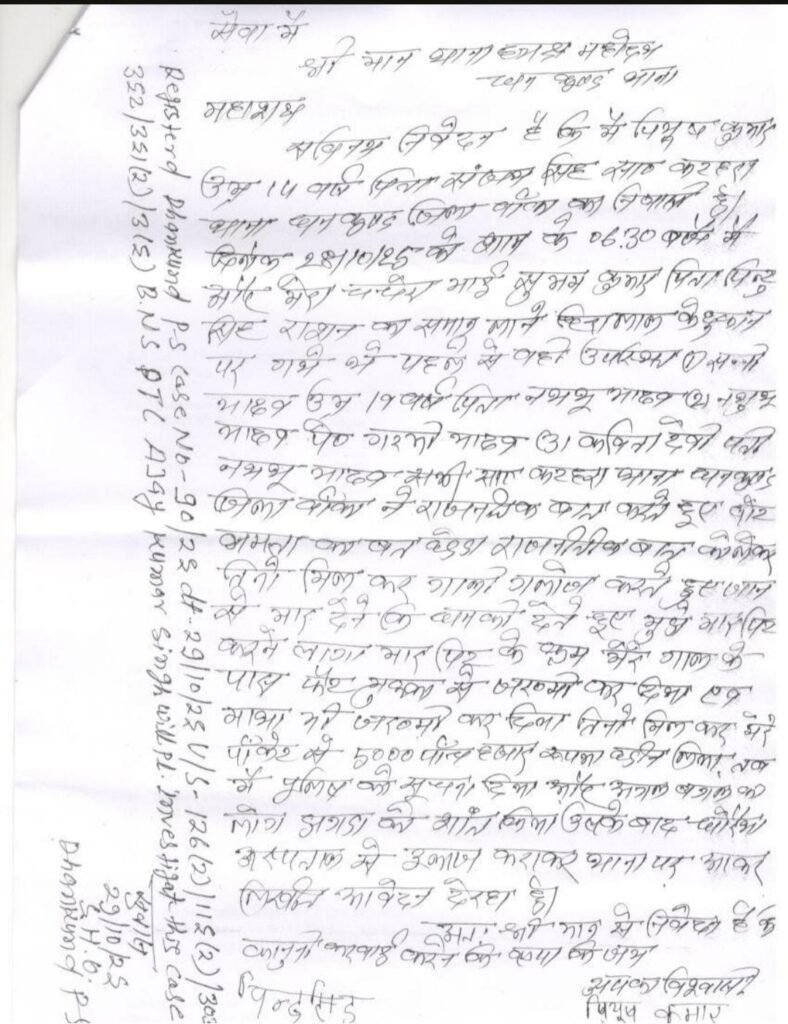 सेवा में
श्री मान थाना महोदय
थाना
महाशय
सविनय निवेदन है कि मैं पियूष कुमार
उम्र 14 वर्ष पिता संजय सिंह सा० कटहरा
थाना धनकुण्ड जिला बाँका का निवासी हूँ।
दिनांक 28/10/25 को शाम के 06:30 बजे मैं
और मेरा चचेरा भाई सुभम कुमार पिता पिन्टु
सिंह राशन का समान लाने हिरालाल के दुकान
पर गये थे पहले से वहाँ उपस्थित ① सन्नी
यादव उम्र 19 वर्ष पिता यादव ②
यादव पि० यादव ③ कविता देवी पति
यादव सभी सा० कटहरा थाना धनकुण्ड
जिला बाँका ने राजनितिक बात करते हुए
का राजनीतिक बात को लेकर
तिनो मिल कर गाली गलौज करते हुए जान
से मार देने कि धमकी देते हुए मुझे मारपिट
करने लगा मार पिट के क्रम मेरे गाल के
पास मुक्का से जख्मी कर दिया एवं
माथा भी जख्मी कर दिया तिनो मिल कर मेरे
पॉकेट से 5000 पाँच हजार रूपया छीन लिया, तब
मैं पुलिस को सूचना दिया और अगल बगल के
लोग झगड़ा को शांत किया उसके बाद धोरैया
अस्पताल में इलाज कराकर थाना पर आकर
लिखित आवेदन दे रहा हूँ।
अतः श्री मान से निवेदन है कि
कानूनी करवाई करने की कृपा की जाय
आपका विश्वासी
पियूष कुमार
पिन्टु सिंह
Registerd Dhankund PS Case No-90/25 dt-29/10/25 U/S-126(2)/115(2)/303
352/351(2)/3(5) B.N.S PTC Ajay Kumar Singh will pl. investigate this case
29/10/25
S.H.O.
Dhankund PS